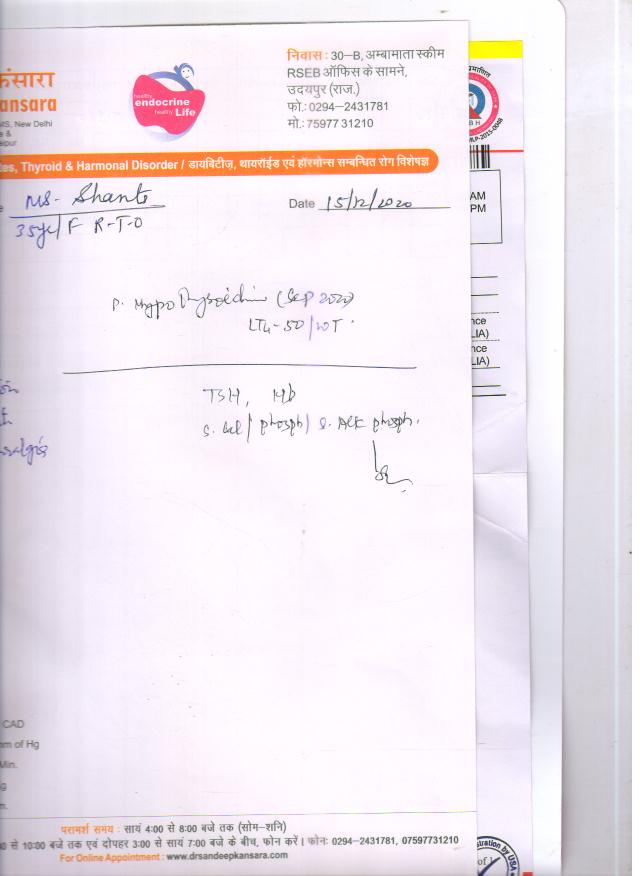 कंसारा
ansara
MS, New Delhi
e &
aipur
healthy
endocrine
healthy Life
निवास : 30–B, अम्बामाता स्कीम
RSEB ऑफिस के सामने,
उदयपुर (राज.)
फो.: 0294–2431781
मो.: 75977 31210
tes, Thyroid & Harmonal Disorder / डायबिटीज़, थायरॉईड एवं हॉरमोन्स सम्बन्धित रोग विशेषज्ञ
Ms. Shanti
Date 15/12/2020
35yr/F R-T-O
P. Hypothyroidism (Sep 2020)
LT4-50/
TSH, Hb
S. Cal/phosph/S. Alk phosph.
CAD
mm of Hg
Min.
g
m.
AM
PM
nce
LIA)
nce
LIA)
परामर्श समय : सायं 4:00 से 8:00 बजे तक (सोम–शनि)
से 10:00 बजे तक एवं दोपहर 3:00 से सायं 7:00 बजे के बीच, फोन करें। फोन: 0294-2431781, 07597731210
For Online Appointment : www.drsandeepkansara.com
of 1